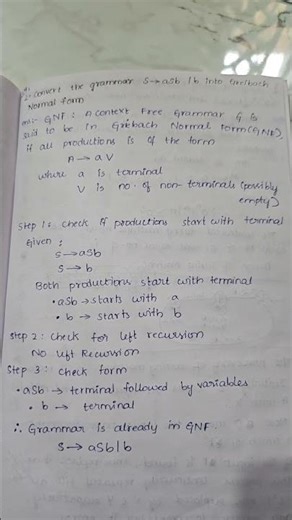 2. convert the grammar S→aSb |b into Greibach
Normal form
Ans:- GNF : A context Free Grammar G is
said to be in Grebach Normal form(GNF),
if all productions is of the form
A → a V
where a is terminal
V is no. of non-terminals (possibly
empty)
Step 1: check If productions start with terminal
Given :
S → aSb
S → b
Both productions start with terminal
• aSb → starts with a
• b → starts with b
Step 2: check for left recursion
No left Recursion
Step 3: check form
• aSb → terminal followed by variables
• b → terminal
∴ Grammar is already in GNF.
S → aSb|b